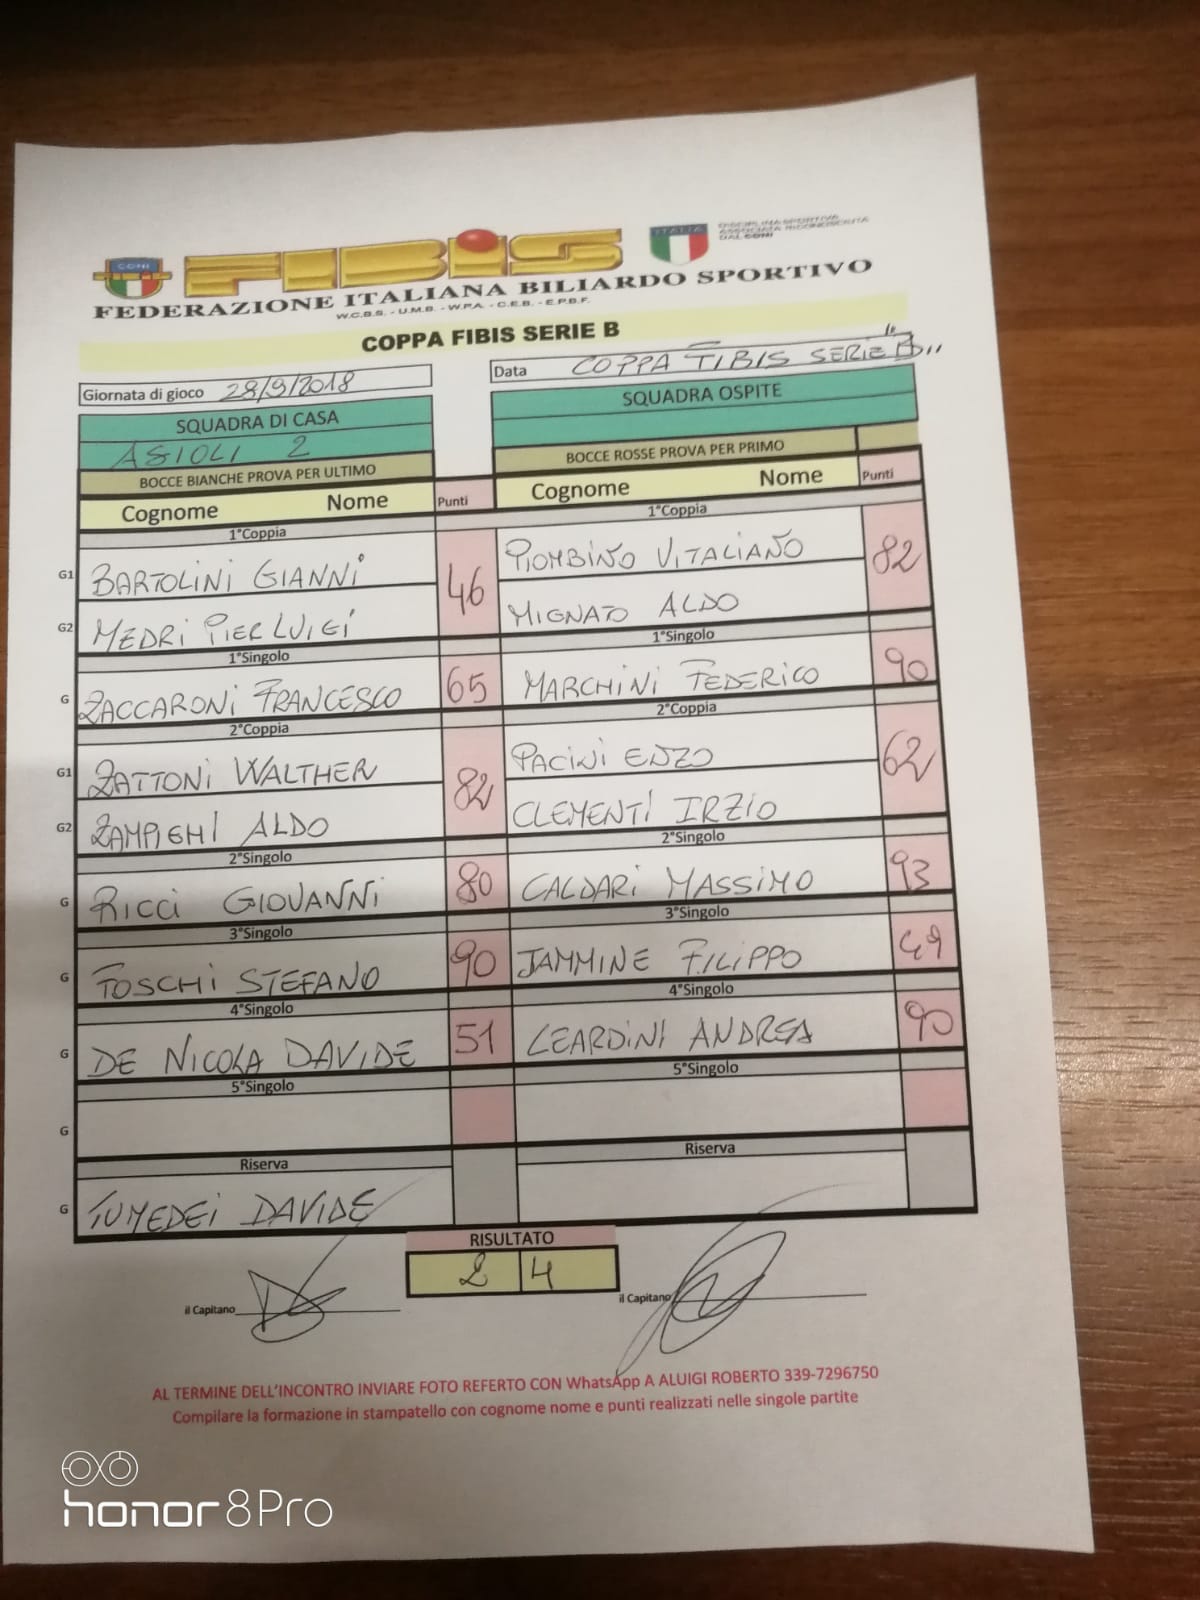 CONI
FIBIS
ITALIA
DISCIPLINA SPORTIVA
ASSOCIATA RICONOSCIUTA
DAL CONI
FEDERAZIONE ITALIANA BILIARDO SPORTIVO
W.C.B.S. - U.M.B. - W.P.A. - C.E.B. - E.P.B.F.
COPPA FIBIS SERIE B
Giornata di gioco 28/9/2018
Data COPPA FIBIS SERIE "B"
SQUADRA DI CASA
SQUADRA OSPITE
ASIOLI 2
BOCCE BIANCHE PROVA PER ULTIMO
BOCCE ROSSE PROVA PER PRIMO
Cognome Nome Punti Cognome Nome Punti
1°Coppia 1°Coppia
G1 BARTOLINI GIANNI 46 PIOMBINO VITALIANO 82
G2 MEDRI PIER LUIGI MIGNATO ALDO
1°Singolo 1°Singolo
G ZACCARONI FRANCESCO 65 MARCHINI FEDERICO 90
2°Coppia 2°Coppia
G1 ZATTONI WALTHER 82 PACINI ENZO 62
G2 ZAMPIGHI ALDO CLEMENTI IRZIO
2°Singolo 2°Singolo
G RICCI GIOVANNI 80 CALDARI MASSIMO 93
3°Singolo 3°Singolo
G FOSCHI STEFANO 90 JAMMINE FILIPPO 49
4°Singolo 4°Singolo
G DE NICOLA DAVIDE 51 LEARDINI ANDREA 90
5°Singolo 5°Singolo
G
Riserva Riserva
G TUMEDEI DAVIDE
RISULTATO
2 4
il Capitano
il Capitano
AL TERMINE DELL'INCONTRO INVIARE FOTO REFERTO CON WhatsApp A ALUIGI ROBERTO 339-7296750
Compilare la formazione in stampatello con cognome nome e punti realizzati nelle singole partite
honor 8Pro